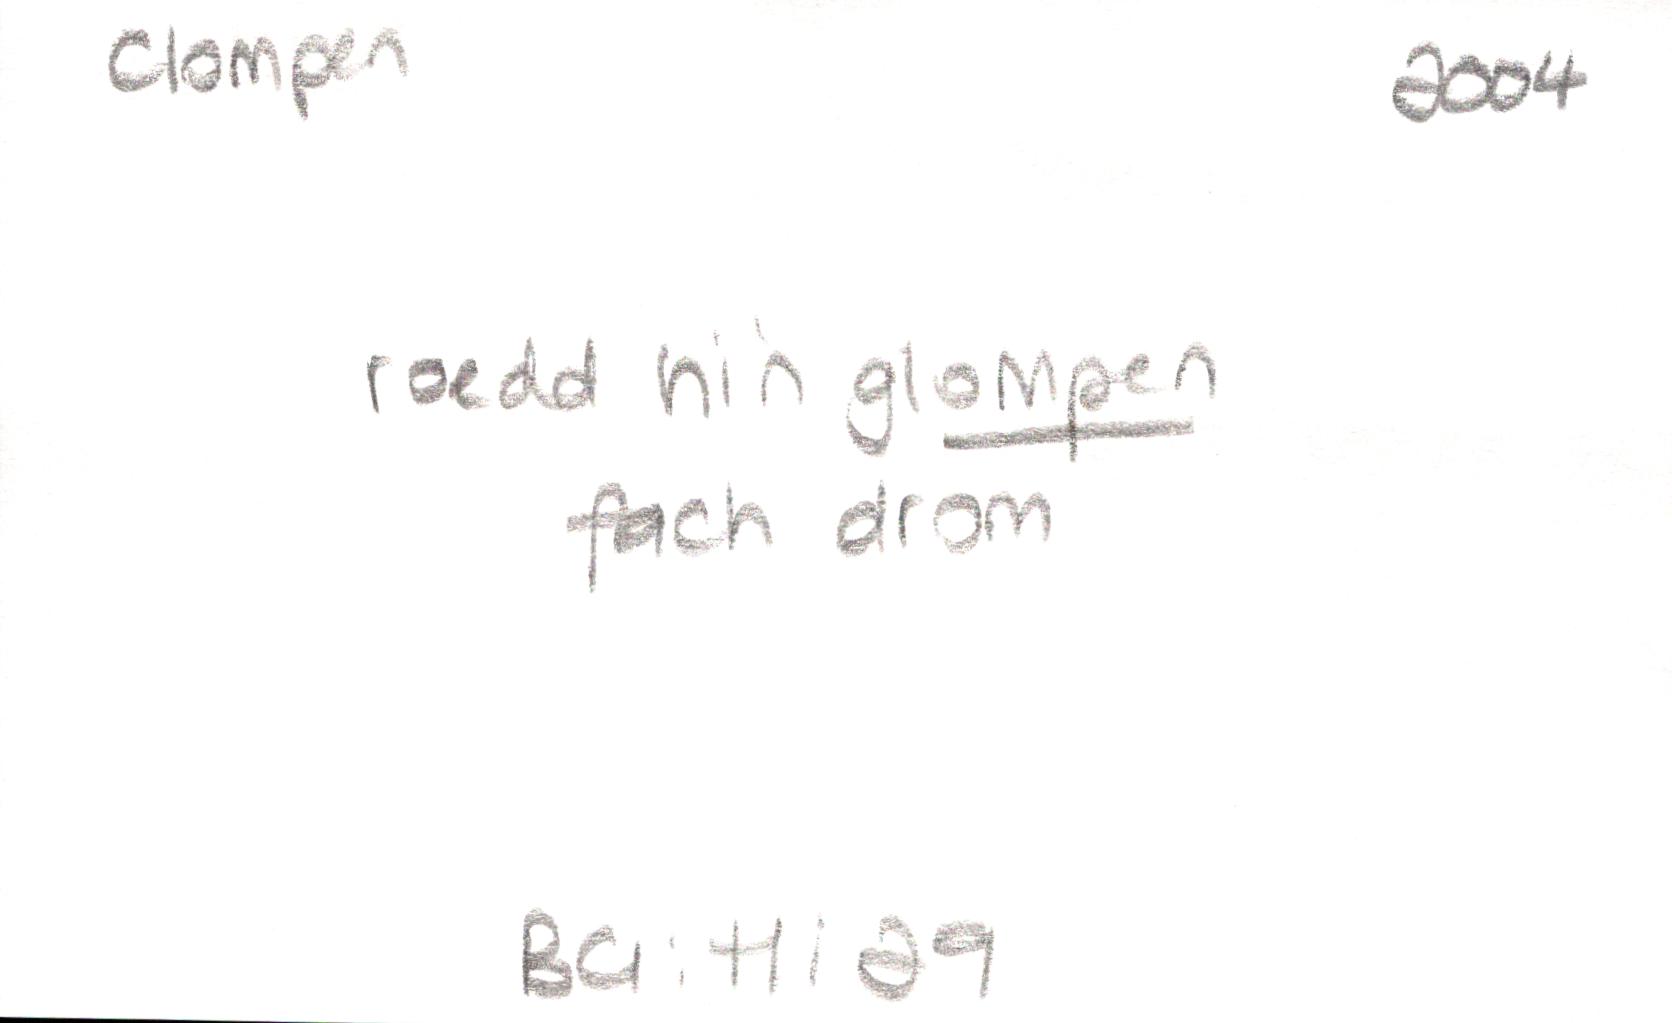 Clompen
2004
roedd hi'n glompen
fach drom
BG: H 29